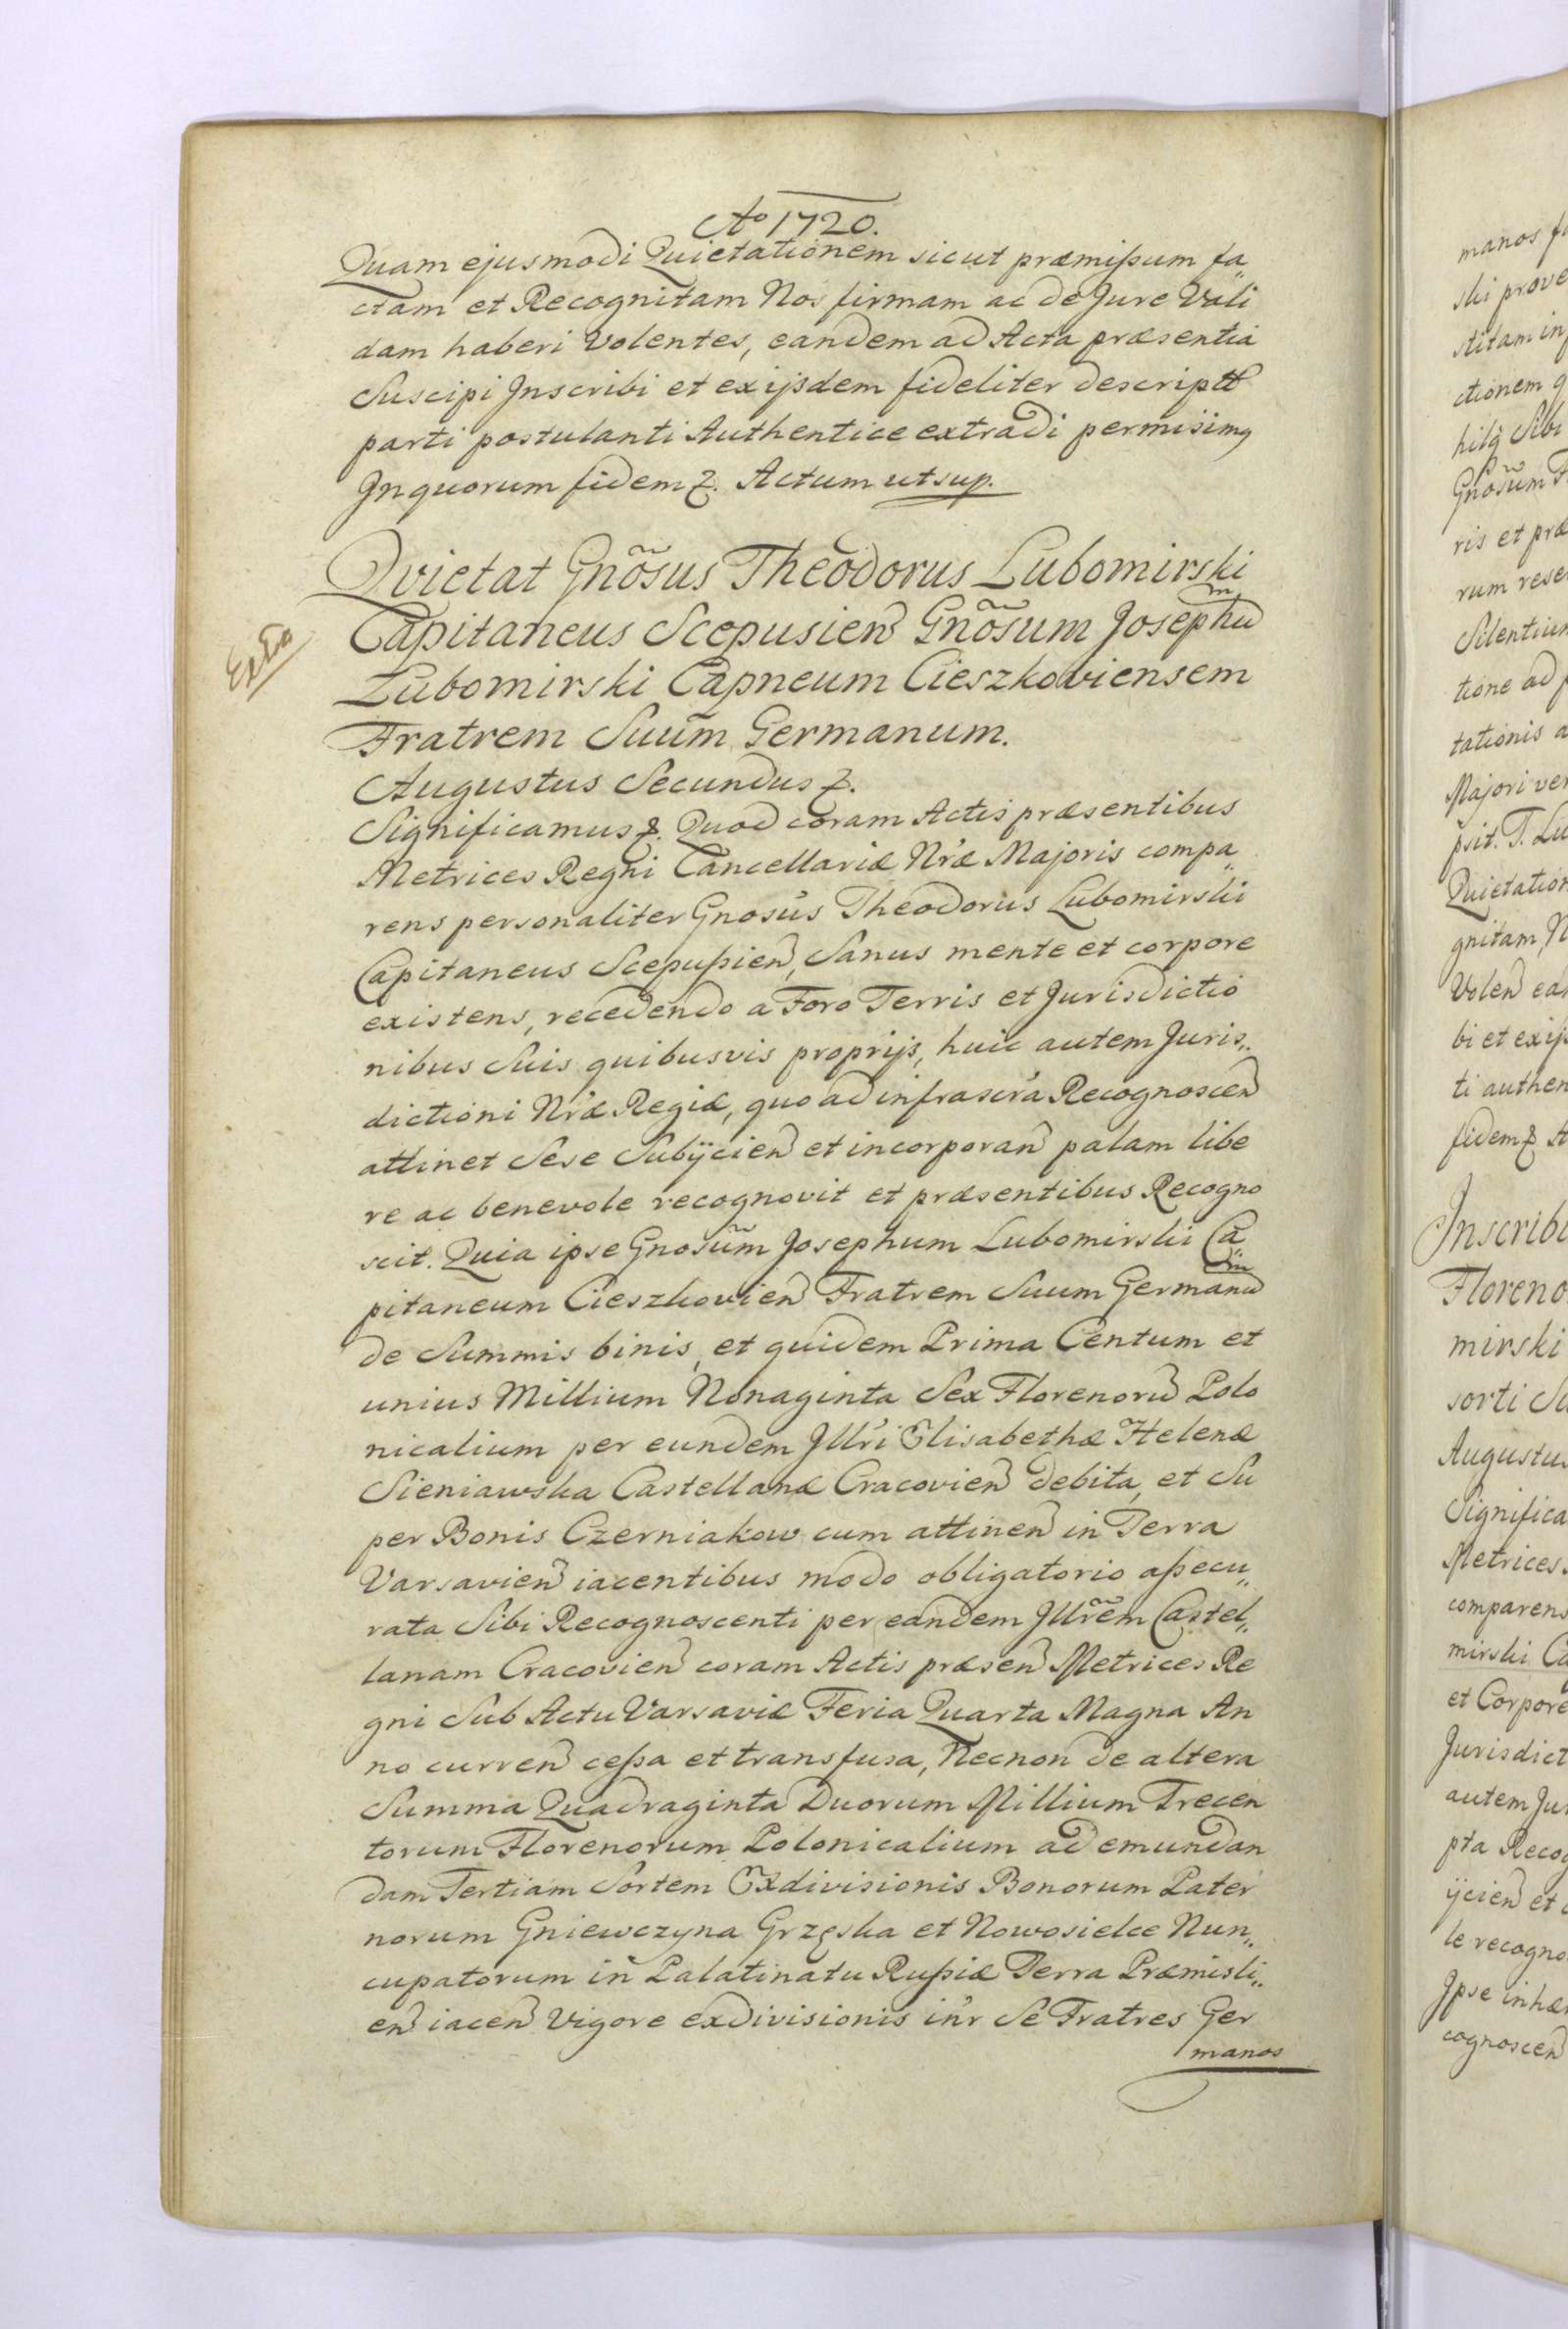 Ao 1720.
Quam ejusmodi Quietationem sicut præmißum fa„
ctam et Recognitam Nos firmam ac de Jure Vali
dam haberi Volentes, eandem ad Acta præsentia
Suscipi Jnscribi et exijsdem fideliter descriptt
parti postulanti Authentice extradi permisimq
Jnquorum fidem &. Actum ut sup.
Qvietat Gnõsus Theodorus Lubomirski
Capitaneus Scepusien Gnõsum Josephum
Lubomirski Capneum Cieszkoviensem
Fratrem Suum Germanum.
Extra
Augustus Secundus &.
Significamus &. Quod coram Actis præsentibus
Metrices Regni Cancellariæ Nræ Majoris compa„
rens personaliter Gnosus Theodorus Lubomirski
Capitaneus Scepußien, Sanus mente et corpore
existens, recedendo a Foro Terris et Jurisdictio
nibus Suis quibusvis proprijs, huic autem Juris„
dictioni Nræ Regiæ, quo ad infrascra Recognoscen
attinet Sese Subijcien et incorporan palam libe
re ac benevole recognovit et præsentibus Recogno
scit. Quia ipse Gnosum Josephum Lubomirski Ca„
pitaneum Cieszkovien Fratrem Suum Germanum
de Summis binis, et quidem Prima Centum et
unius Millium Nonaginta Sex Florenoru Polo
nicalium per eundem Jllri Elisabethæ Helenæ
Sieniawska Castellanæ Cracovien debita, et Su
per Bonis Czerniakow cum attinen in Terra
Varsavien iacentibus modo obligatorio aßecu„
rata Sibi Recognoscenti per eandem Jllrẽm Castel„
lanam Cracovien coram Actis præsen Metrices Re
gni Sub Actu Varsaviæ Feria Quarta Magna An
no curren ceßa et transfusa, Necnon de altera
Summa Quadraginta Duorum Millium Trecen
torum Florenorum Polonicalium ad emundan
dam Tertiam Sortem Exdivisionis Bonorum Pater
norum Gniewczyna Grzęska et Nowosielce Nun„
cupatorum in Palatinatu Rußiæ Terra Præmisli„
en iacen Vigore exdivisionis inr Se Fratres Ger
manos
manos
ski prove
stitam in
ctionem
Sibi
Gnosum
ris et præ
rum rese
Silentium
tione ad
tationis a
Majori ver
psit. T. Lu
Quietation
gnitam, N
Volen ean
bi et exijs
ti authen
fidem & A
Jnscribi
Floreno
mirski
sorti Su
Augustus
Significa
Metrices
comparens
mirski Ca
et Corpore
Jurisdict
autem Jur
pta Recog
ijcien et
le recogno
Jpse inhæ
cognoscen